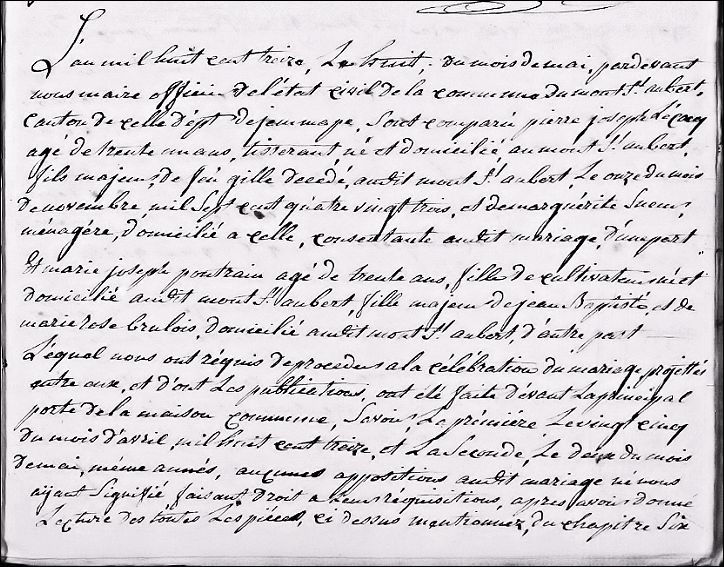 L'an mil huit cent treize, Le huit, du mois de mai, pardevant
nous maire officier De l'état civil de la commune du mont St. aubert,
Canton de Celle Dépt. de jemmape, Sont comparu pierre joseph Lécocq
agé de trente un ans, tisserant, né et domicilié, au mont St. aubert,
fils majeur, de feu gille Décédé, audit mont St. aubert, Le onze du mois
De novembre, mil Sept cent quatre vingt trois, et de marguérite
ménagère, Domicilié a celle, consentante audit mariage, D'une part
Et marie joseph poutrain agé de trente ans, fille De cultivateur né et
domicilié audit mont St. aubert, fille majeur de jean Baptiste, et de
marie rose brulois, domicilié audit mont St. aubert, D'autre part
Léquel nous ont réquis De procéder a la célébration du mariage projettée
entre eux, et d'ont Les publications, ont été faite Dévant La principal
porte De la maison commune, Savoir, La prémière Le vingt cinq
Du mois d'avril, mil huit cent treize, et La Seconde, Le deux du mois
De mai, même année, aucunes appositions audit mariage ne nous
aÿant Signifié, faisant Droit a Leurs réquisitions, apres avoir Donné
Lecture Des toutes Les pièces, ci dessus mentionnez, du chapitre Six